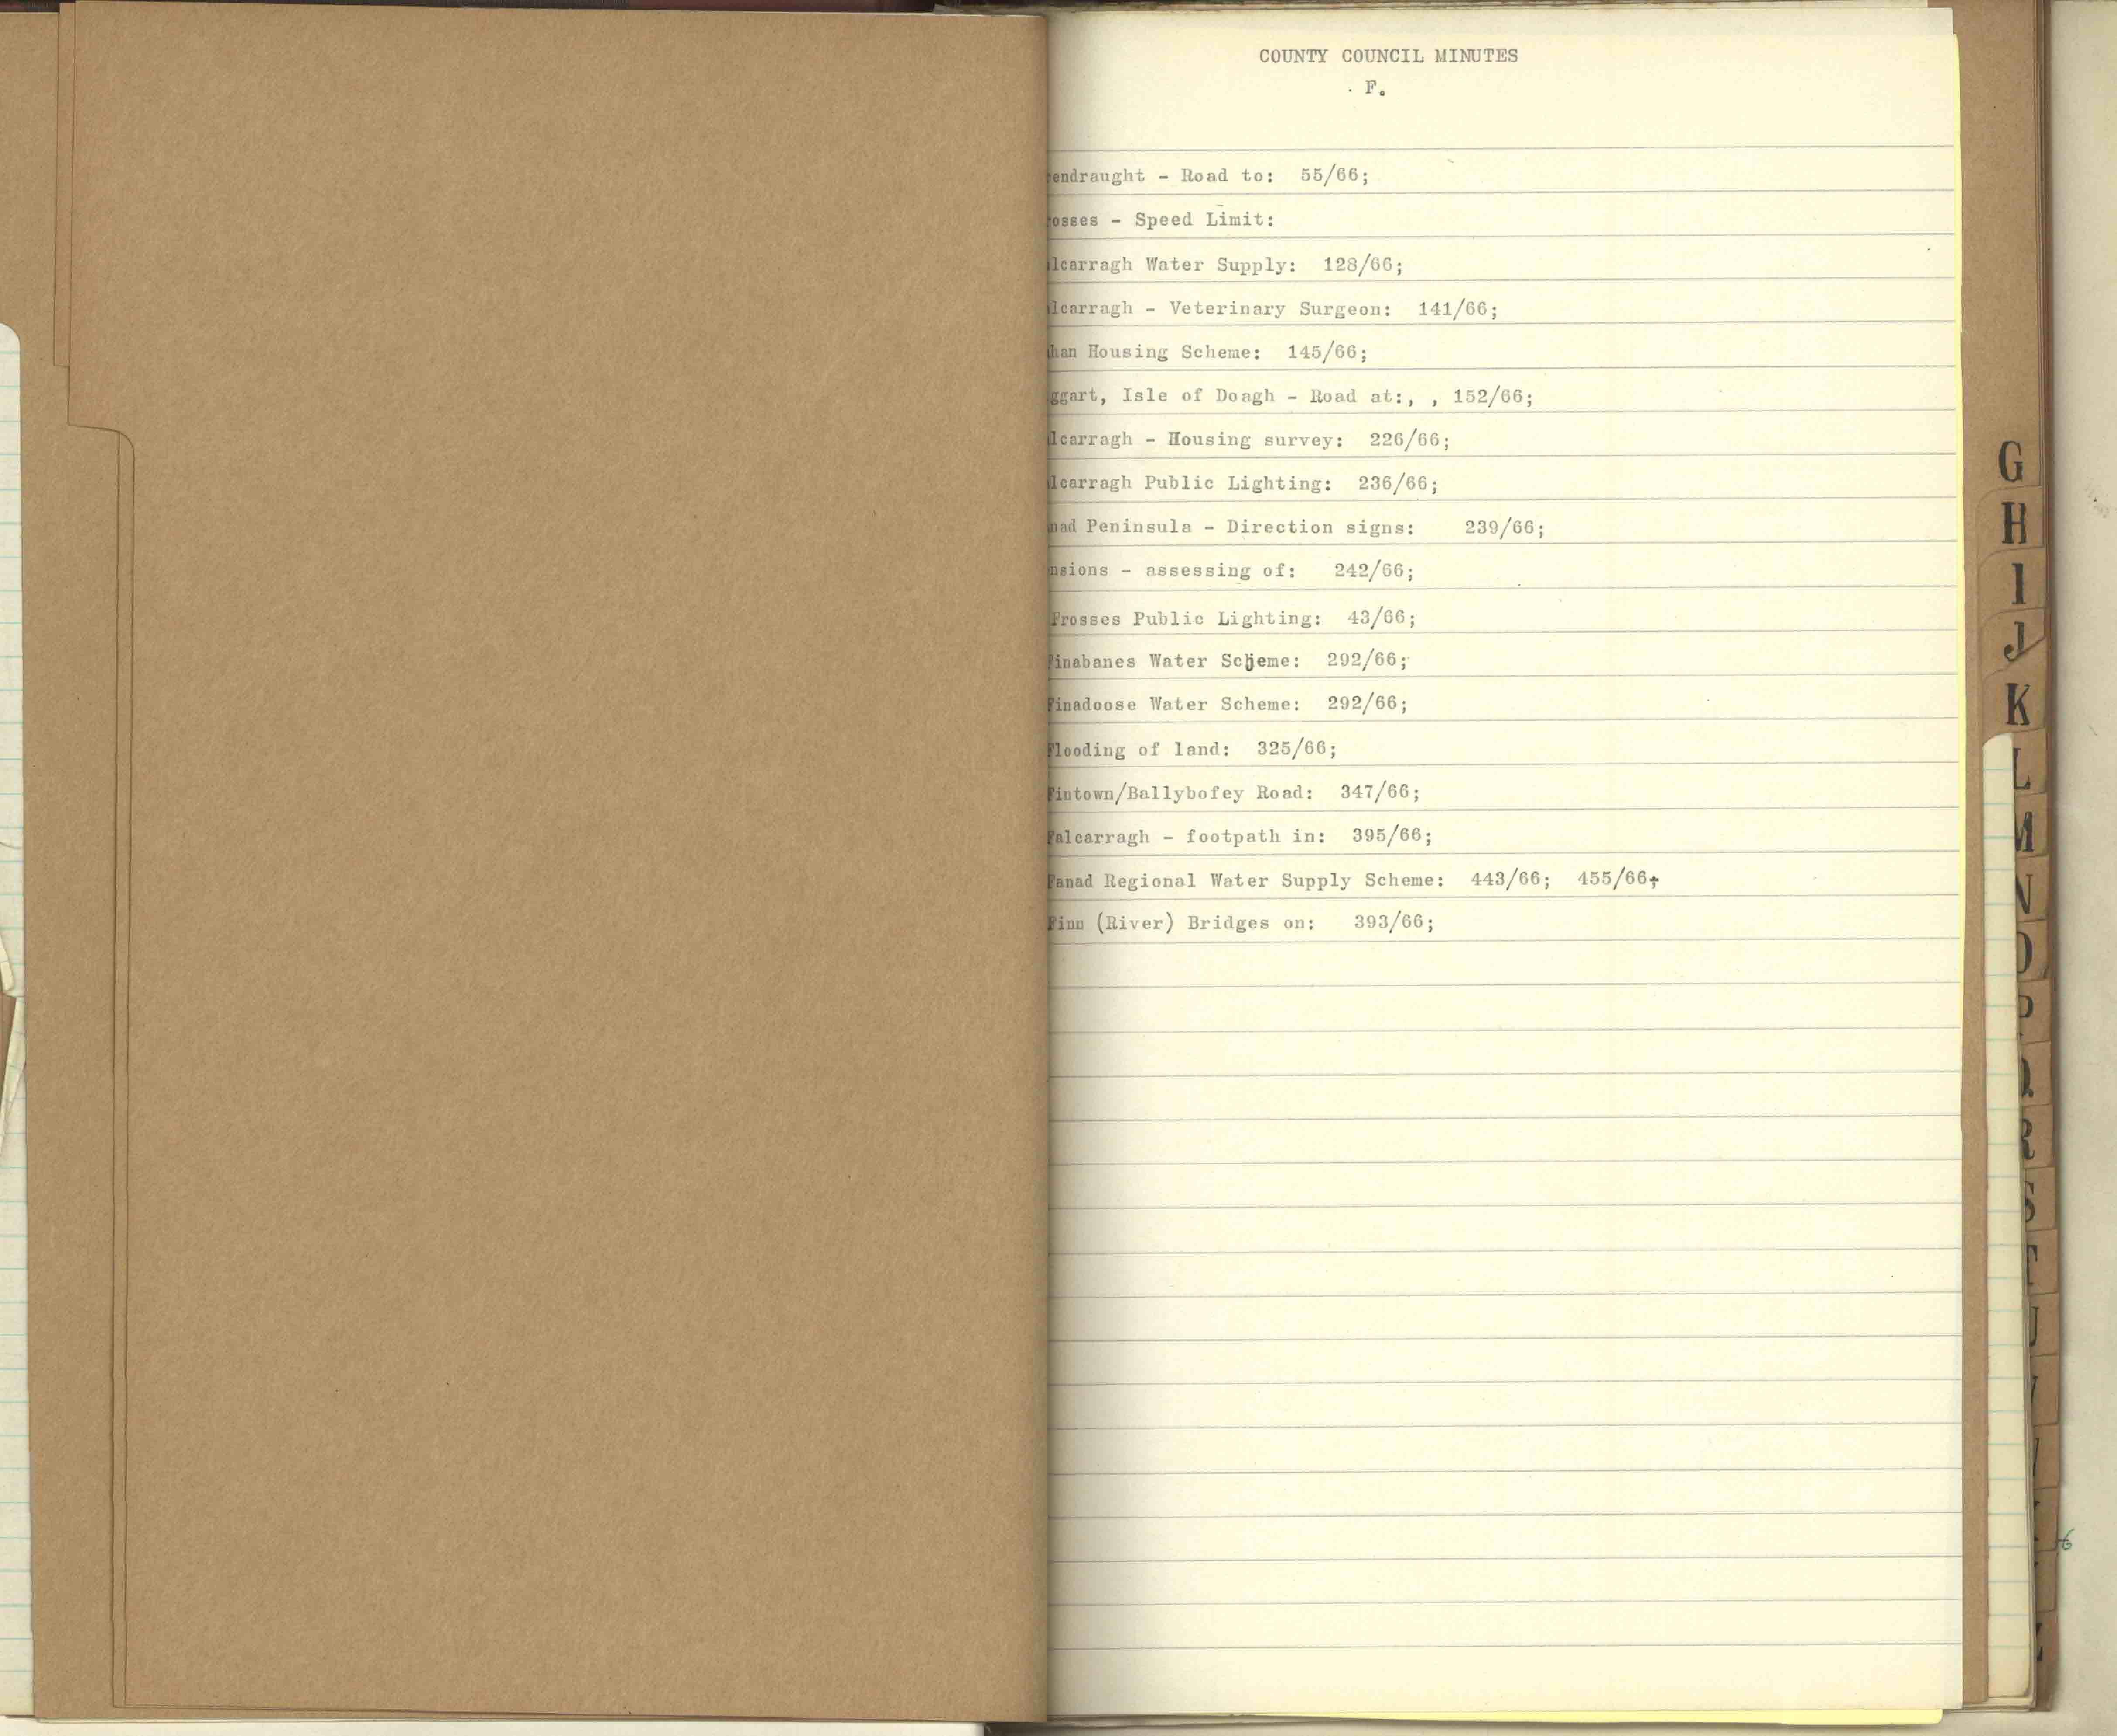 COUNTY COUNCIL MINUTES
F.
endraught - Road to: 55/66;
osses - Speed Limit:
lcarragh Water Supply: 128/66;
lcarragh - Veterinary Surgeon: 141/66;
han Housing Scheme: 145/66;
ggart, Isle of Doagh - Road at:, , 152/66;
lcarragh - Housing survey: 226/66;
lcarragh Public Lighting: 236/66;
nad Peninsula - Direction signs: 239/66;
nsions - assessing of: 242/66;
Frosses Public Lighting: 43/66;
Finabanes Water Scheme: 292/66;
Finadoose Water Scheme: 292/66;
Flooding of land: 325/66;
Fintown/Ballybofey Road: 347/66;
Falcarragh - footpath in: 395/66;
Fanad Regional Water Supply Scheme: 443/66; 455/66;
Finn (River) Bridges on: 393/66;
G
H
I
J
K
L
M
N
O
P
Q
R
S
T
U
V
6